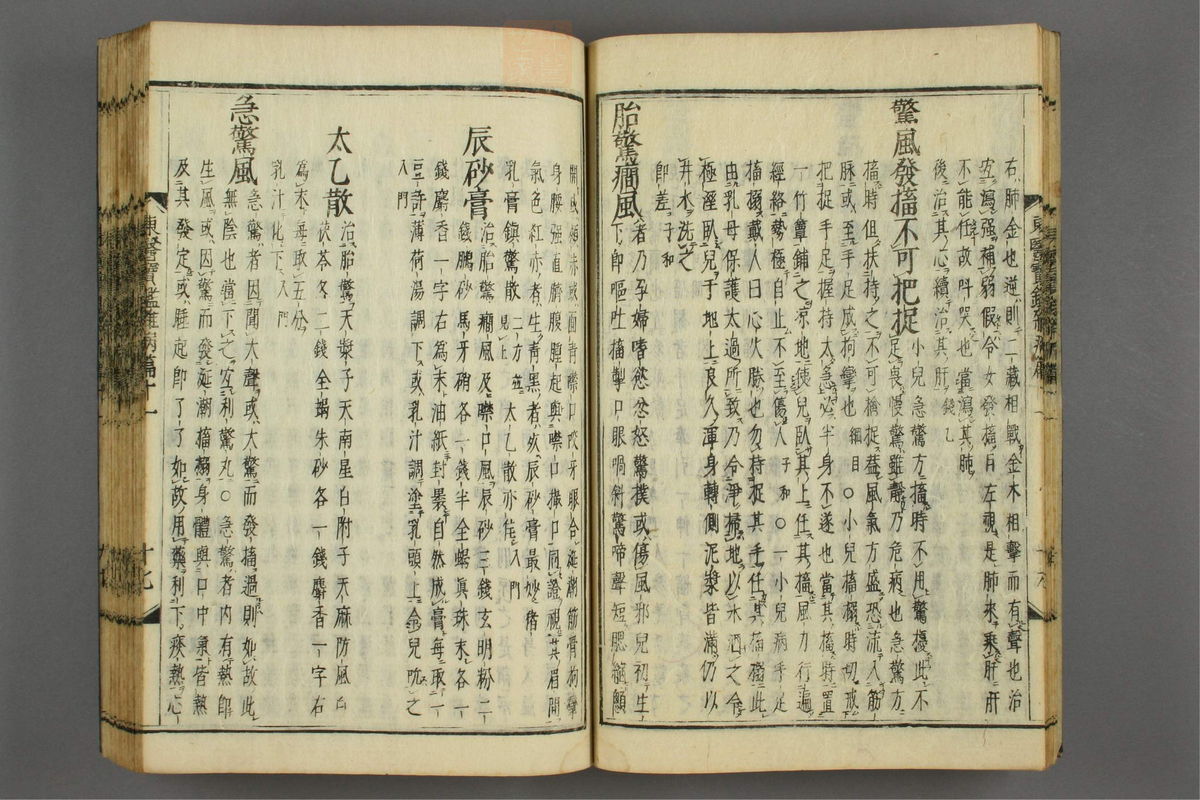 右肺金也逆則二藏相戰金木相擊而有聲也治
宜瀉强補弱假令女發搐目左視是肺來乘肝肝
不能任故叫哭也當瀉其肺
後治其心續治其肝 錢乙
驚風發搐不可把捉 小兒急驚方搐時不用驚擾此不
足畏慢驚雖靜乃危病也急驚方
搐時但扶持之不可擒捉盖風氣方盛恐流入筋
脉或至手足成拘攣也 綱目 ○小兒搐搦時切戒
把捉手足握持太急必半身不遂也當其搐時置
一竹簟鋪之凉地使兒臥其上任其搐風力行遍
經絡勢極自止不至傷人 子和 ○一小兒病手足
搐搦戴人曰心火勝也勿持捉其手任其搐搦此
由乳母保護太過所致乃令淨掃地以水洒之令
極濕臥兒于地上良久渾身轉側泥漿皆滿仍以
井水洗之
卽差 子和
胎驚癎風 者乃孕婦嗜慾忿怒驚撲或傷風邪兒初生
下卽嘔吐搐掣口眼喎斜驚啼聲短腮縮顖
開或頰赤或面靑噤口咬牙眼合涎潮筋骨拘攣
身腰强直臍腹腫起與噤口撮口同證視其眉間
氣色紅赤者生靑黑者死辰砂膏最妙猪
乳膏鎭驚散 二方並見上 太乙散亦佳 入門
辰砂膏 治胎驚癎風及噤口風辰砂三錢玄明粉二
錢鵬砂馬牙硝各一錢半全蝎眞珠末各一
錢麝香一字右爲末油紙封裹自然成膏每取一
豆許薄荷湯調下或乳汁調塗乳頭上令兒吮之
入門
太乙散 治胎驚天漿子天南星白附子天麻防風白
茯苓各二錢全蝎朱砂各一錢麝香一字右
爲末每取五分
乳汁化下 入門
急驚風 急驚者因聞大聲或大驚而發搐過則如故此
無陰也當下之宜利驚丸○急驚者內有熱卽
生風或因驚而發涎潮搐搦身體與口中氣皆熱
及其發定或睡起卽了了如故用藥利下痰熱心
東醫寶鑑雜病篇十一
十七